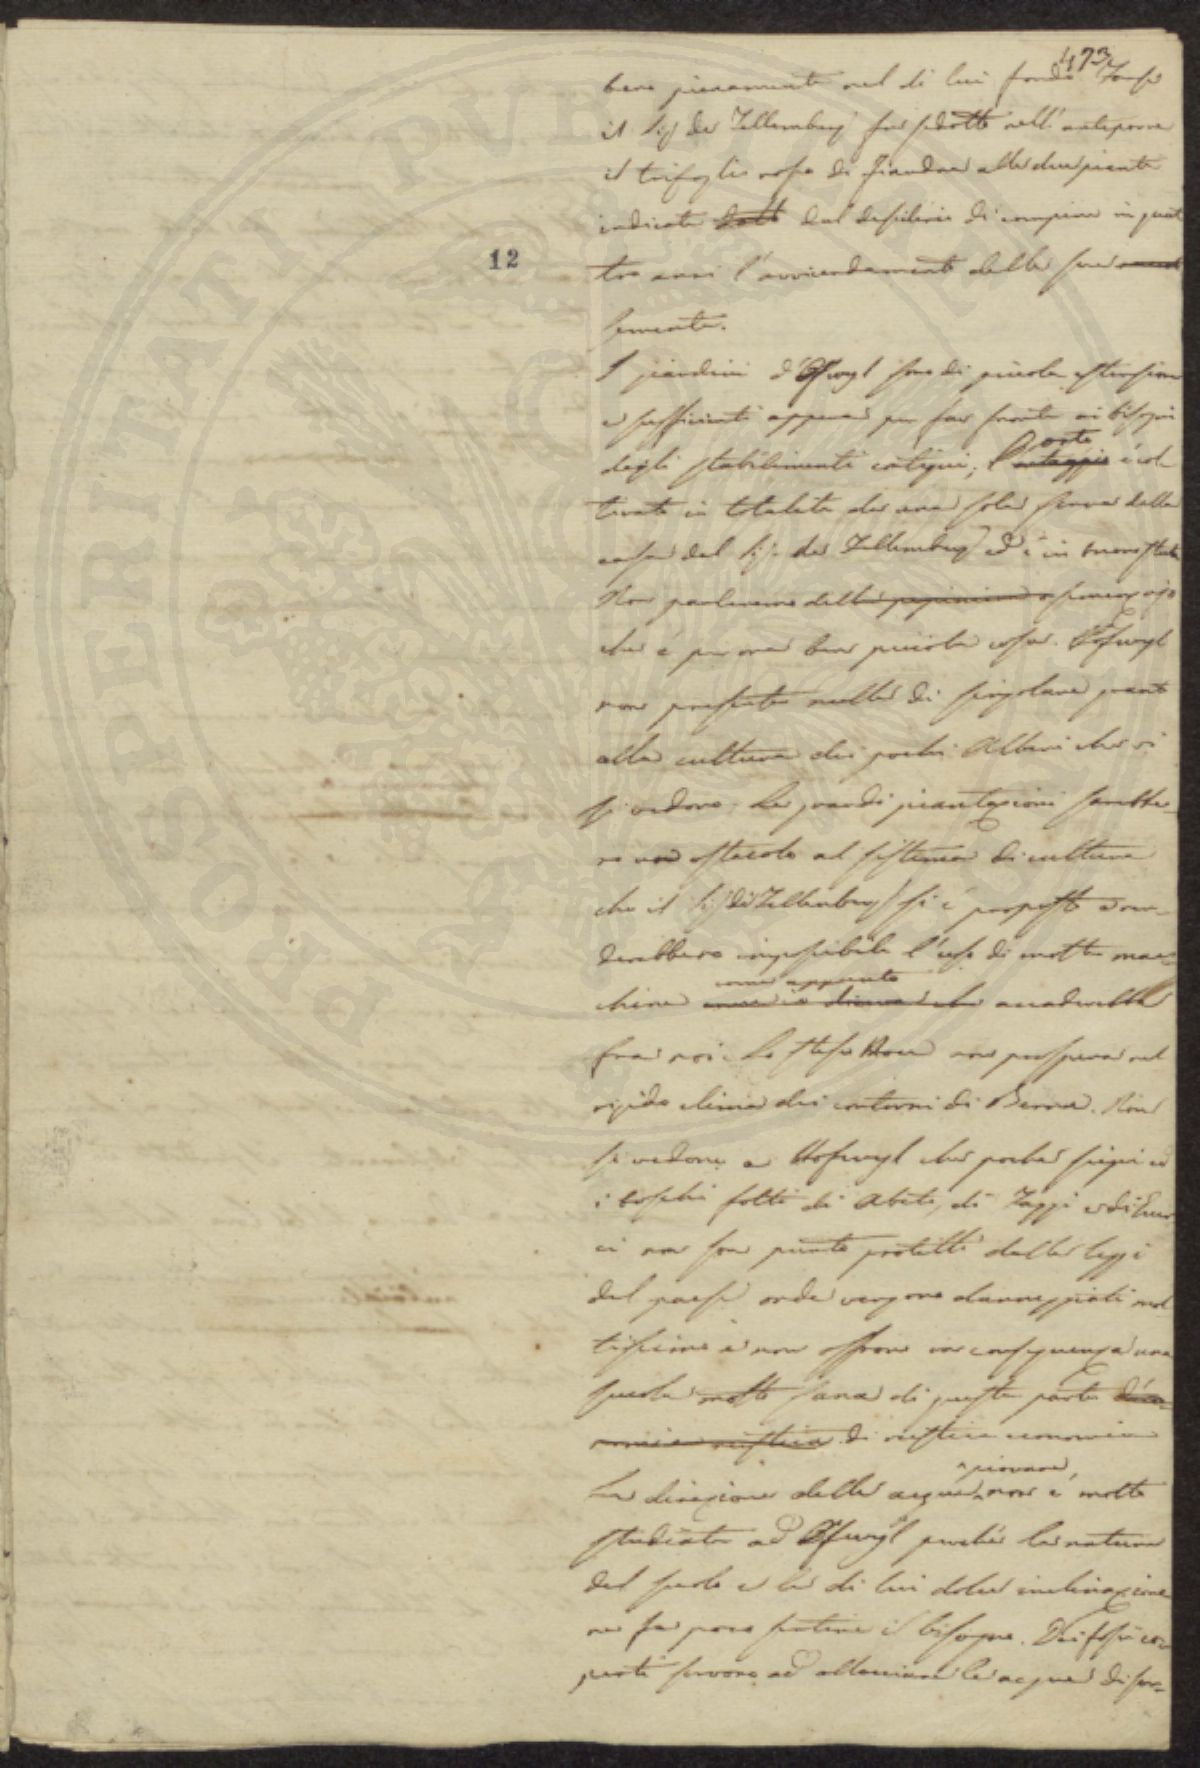 473
bene pienamente nel di lui fondo. Forse
il Sig de Fellemberg fu sedotto nell'anteporre
il trifoglio rosso di Fiandra alle due piante
indicate dall dal desiderio di compiere in quat
tro anni l'avvicendamento delle sue
12
sementa.
I giardini d'Ofwyl sono di piccola estensione
e sufficienti appena per far fronte ai bisogni
degli stabilimenti contigui; l'ortaggio è col-
orto
tivato in totalità da una sola serva della
casa del Sig. de Fellemberg ed è in buono stato
Non parleremo della
che è per ora ben piccola cosa. Hofwyl
non presenta nulla di singolare quanto
alla cultura dei pochi Alberi che vi
si vedono. Le grandi piantagioni sarebbe-
ro un ostacolo al sistema di cultura
che il Sig de Fellemberg si è proposto e ren-
derebbero impossibile l'uso di molte mac-
come appunto
chine accaderebbe
fra noi. Lo stesso Noce non prospera nel
rigido clima dei contorni di Berna. Non
si vedono a Hofwyl che poche siepi ed
i boschi folti di Abeti, di Faggi e di Querce
ci non son punto protetti dalle leggi
del paese onde vengono danneggiati mol
tissimo e non offrono in conseguenza una
scuola molto sana di questa parte d'eco-
nomia rustica di rustica economia
piovane,
La direzione delle acque non è molto
studiata ad Ofwyl perchè la natura
del suolo e la di lui dolce inclinazione
ne fa poco sentire il bisogno. Dei fossi co-
perti servono ad allacciare le acque di sor-